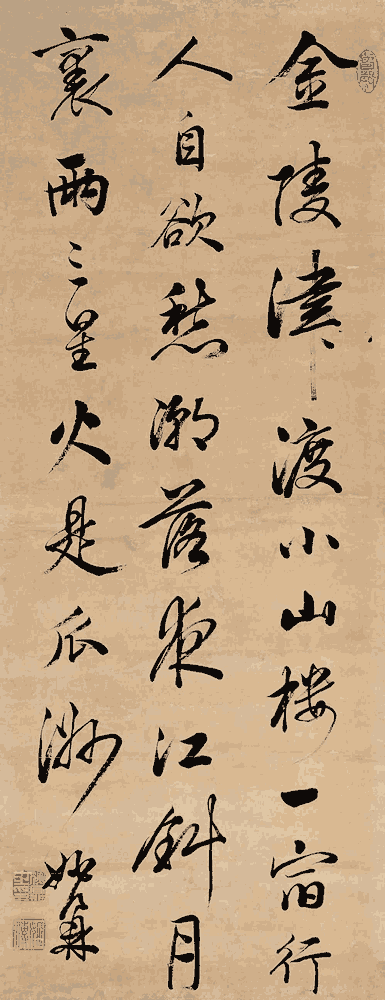 金陵津渡小山樓一宿行
人自欲愁潮落夜江斜月
裏兩三星火是瓜洲 姚鼐